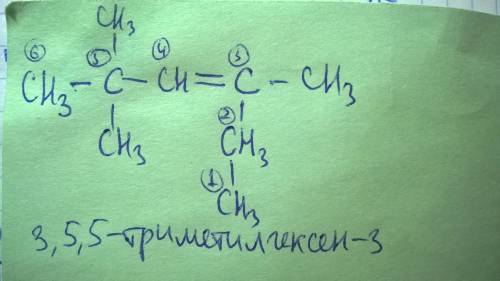 CH₃
⑥ ⑤ ④ ③
CH₃ – C – CH = C – CH₃
②
CH₃ CH₃
①
CH₃
3,5,5-триметилгексен-3